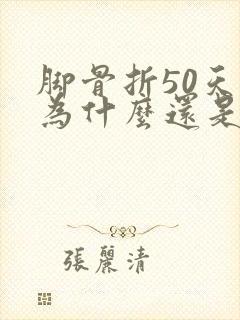 脚骨折50天
為什麼還是
張麗清